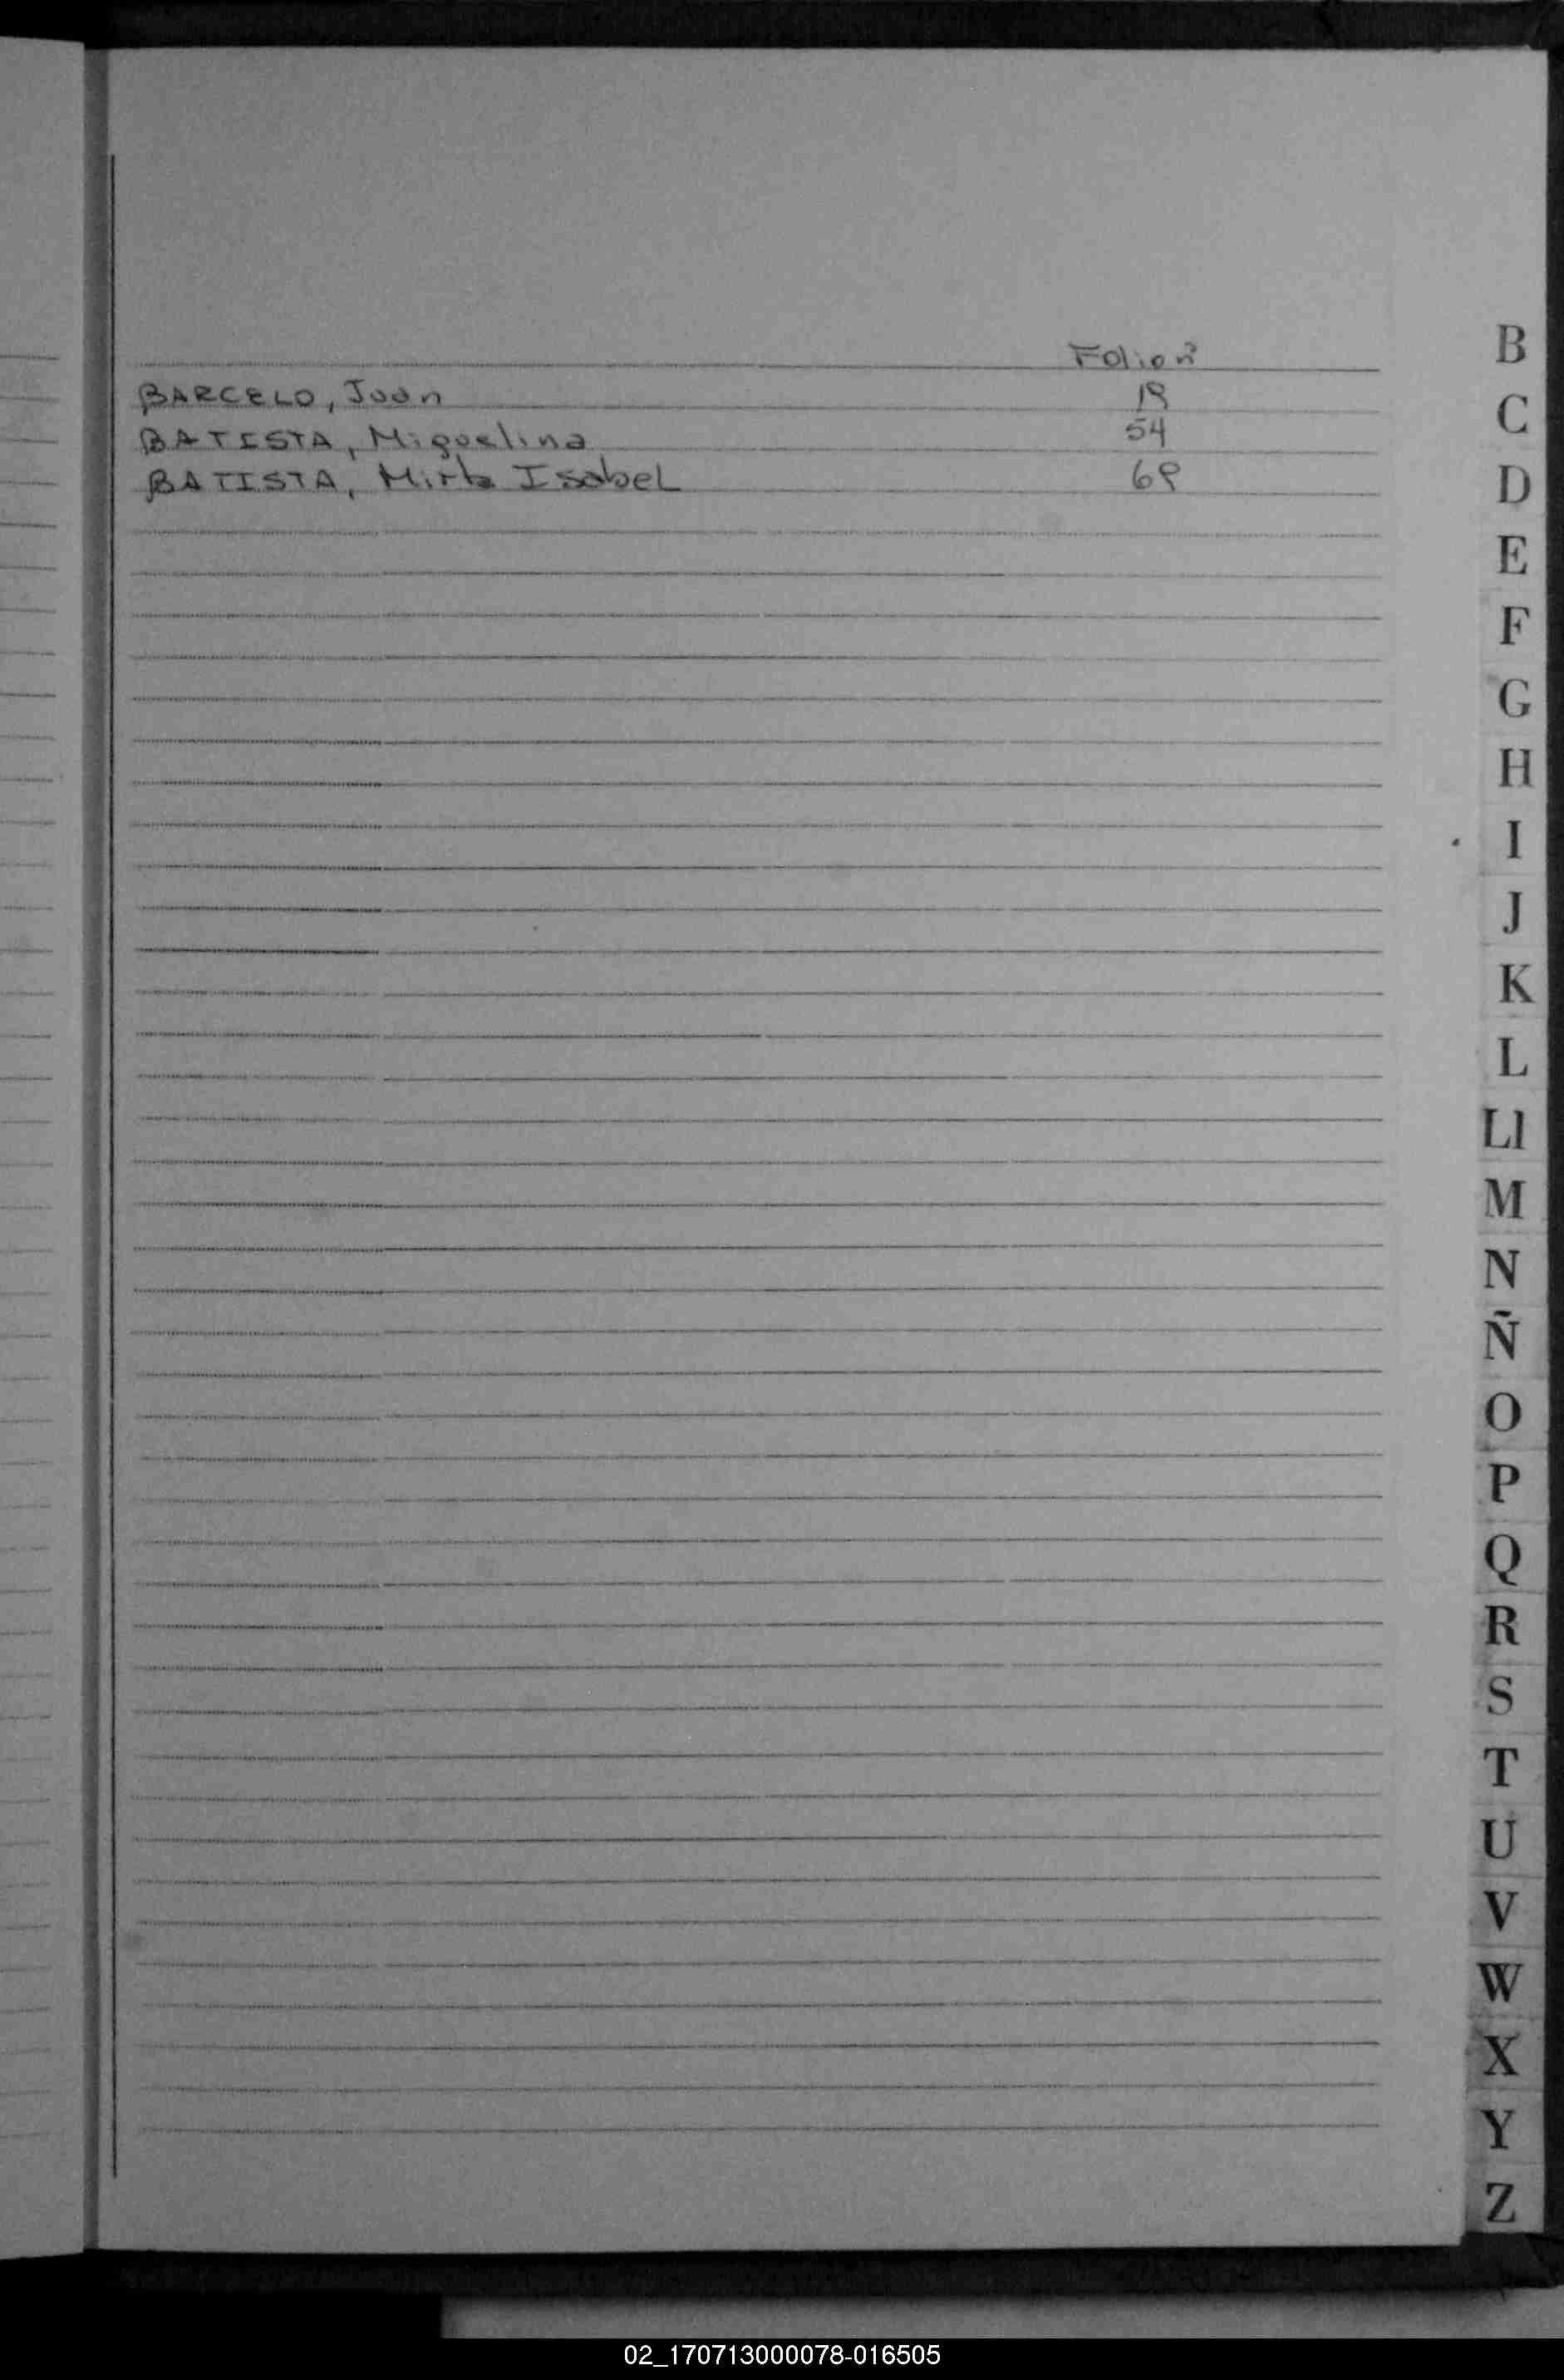 Folio nº
BARCELO, Juan 19
BATISTA, Miguelina 54
BATISTA, Mirta Isabel 69
B
C
D
E
F
G
H
I
J
K
L
Ll
M
N
Ñ
O
P
Q
R
S
T
U
V
W
X
Y
Z
02_170713000078-016505